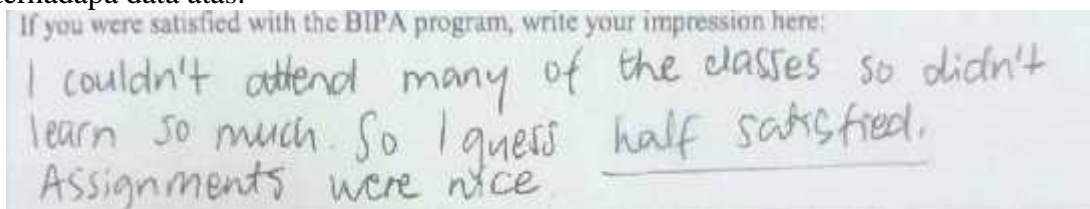 If you were satisfied with the BIPA program, write your impression here:
I couldn't attend many of the classes so didn't
learn so much. So I guess half satisfied.
Assignments were nice